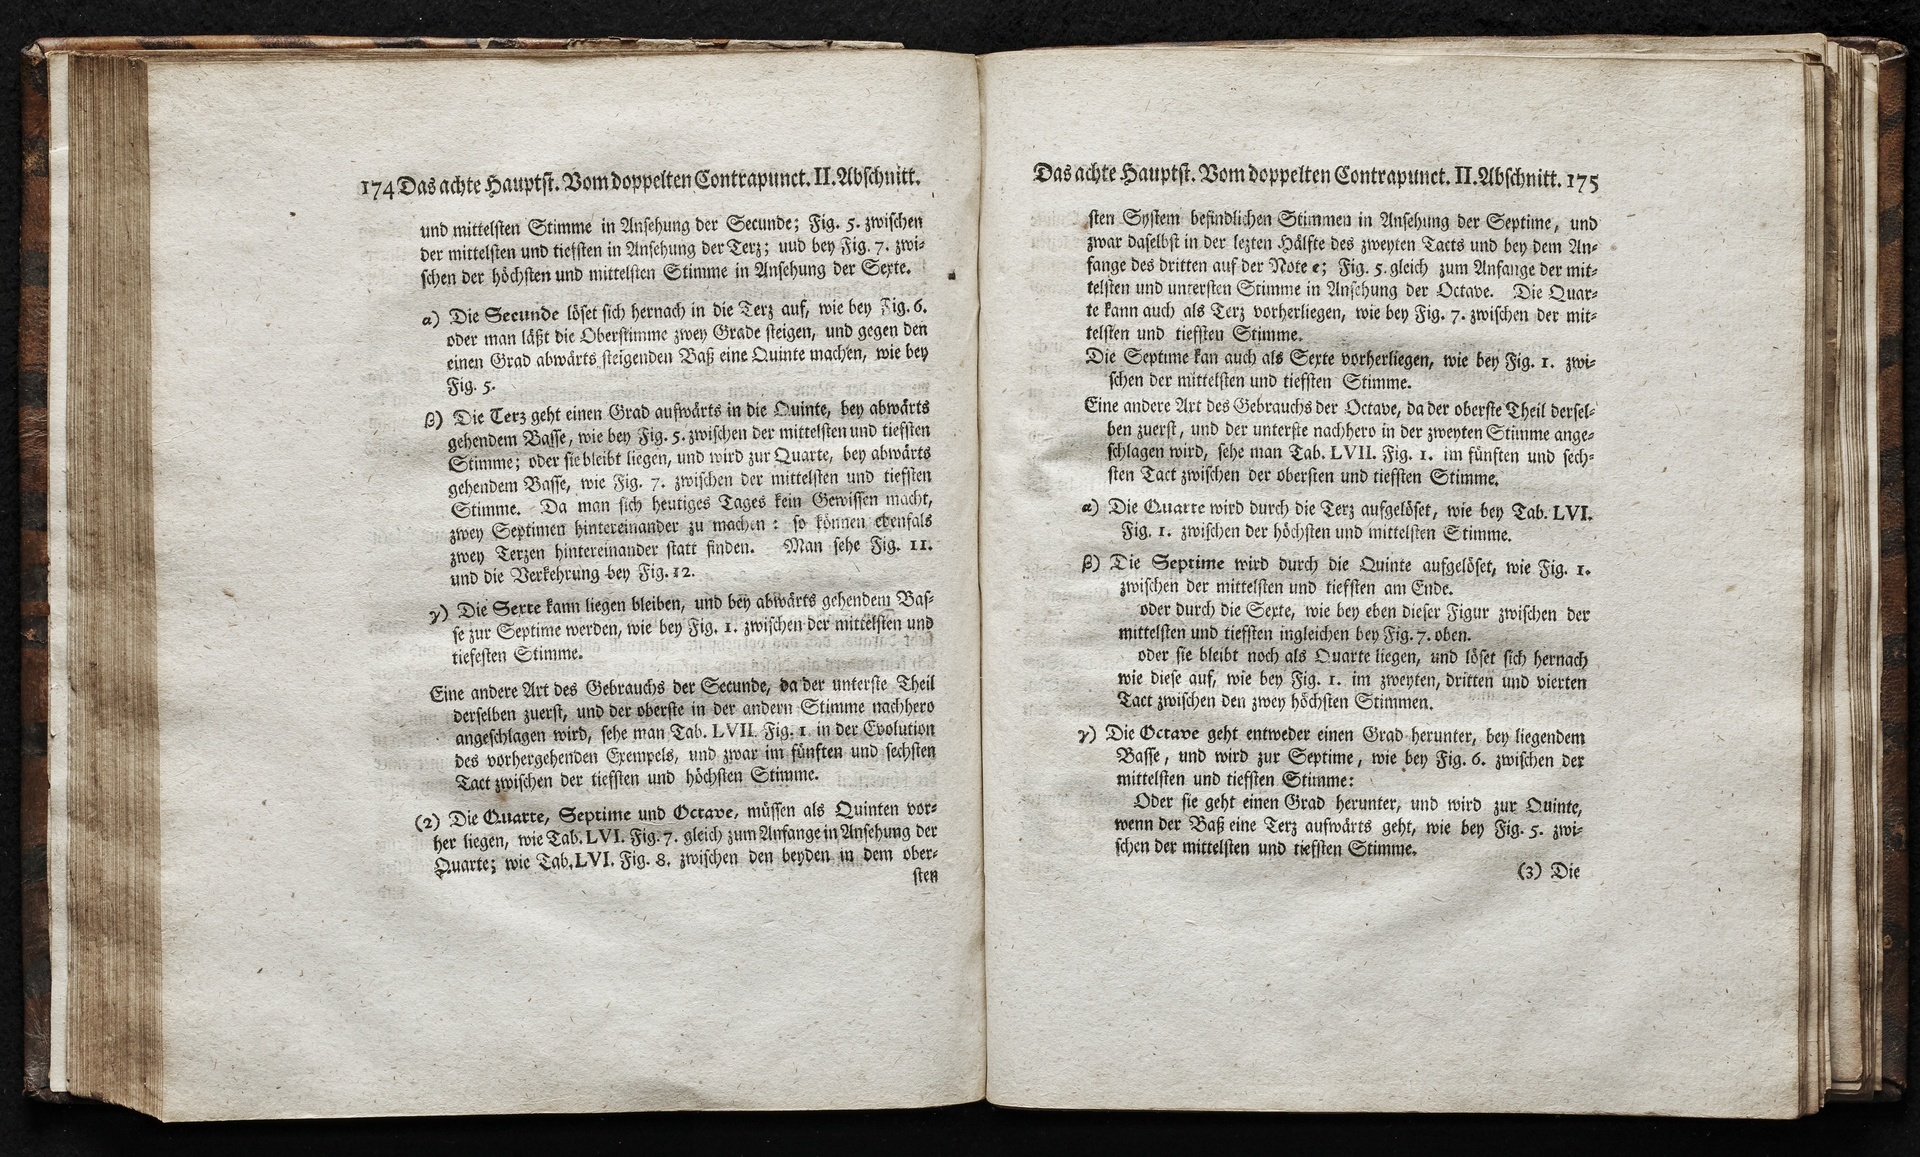 174 Das achte Hauptst. Vom doppelten Contrapunct. II. Abschnitt.
und mittelsten Stimme in Ansehung der Secunde; Fig. 5. zwischen
der mittelsten und tiefsten in Ansehung der Terz; uud bey Fig. 7. zwi-
schen der höchsten und mittelsten Stimme in Ansehung der Sexte.
α) Die Secunde löset sich hernach in die Terz auf, wie bey Fig. 6.
oder man läßt die Oberstimme zwey Grade steigen, und gegen den
einen Grad abwärts steigenden Baß eine Quinte machen, wie bey
Fig. 5.
β) Die Terz geht einen Grad aufwärts in die Quinte, bey abwärts
gehendem Basse, wie bey Fig. 5. zwischen der mittelsten und tiefsten
Stimme; oder sie bleibt liegen, und wird zur Quarte, bey abwärts
gehendem Basse, wie Fig. 7. zwischen der mittelsten und tiefsten
Stimme. Da man sich heutiges Tages kein Gewissen macht,
zwey Septimen hintereinander zu machen: so können ebenfals
zwey Terzen hintereinander statt finden. Man sehe Fig. 11.
und die Verkehrung bey Fig. 12.
γ) Die Sexte kann liegen bleiben, und bey abwärts gehendem Bas-
se zur Septime werden, wie bey Fig. 1. zwischen der mittelsten und
tiefesten Stimme.
Eine andere Art des Gebrauchs der Secunde, da der unterste Theil
derselben zuerst, und der oberste in der andern Stimme nachhero
angeschlagen wird, sehe man Tab. LVII. Fig. 1. in der Evolution
des vorhergehenden Exempels, und zwar im fünften und sechsten
Tact zwischen der tiefsten und höchsten Stimme.
(2) Die Quarte, Septime und Octave, müssen als Quinten vor-
her liegen, wie Tab. LVI. Fig. 7. gleich zum Anfange in Ansehung der
Quarte; wie Tab. LVI. Fig. 8. zwischen den beyden in dem ober-
sten
Das achte Hauptst. Vom doppelten Contrapunct. II. Abschnitt. 175
sten System befindlichen Stimmen in Ansehung der Septime, und
zwar daselbst in der lezten Hälfte des zweyten Tacts und bey dem An-
fange des dritten auf der Note e; Fig. 5. gleich zum Anfange der mit-
telsten und untersten Stimme in Ansehung der Octave. Die Quar-
te kann auch als Terz vorherliegen, wie bey Fig. 7. zwischen der mit-
telsten und tiefsten Stimme.
Die Septime kan auch als Sexte vorherliegen, wie bey Fig. 1. zwi-
schen der mittelsten und tiefsten Stimme.
Eine andere Art des Gebrauchs der Octave, da der oberste Theil dersel-
ben zuerst, und der unterste nachhero in der zweyten Stimme ange-
schlagen wird, sehe man Tab. LVII. Fig. 1. im fünften und sech-
sten Tact zwischen der obersten und tiefsten Stimme.
α) Die Quarte wird durch die Terz aufgelöset, wie bey Tab. LVI.
Fig. 1. zwischen der höchsten und mittelsten Stimme.
β) Die Septime wird durch die Quinte aufgelöset, wie Fig. 1.
zwischen der mittelsten und tiefsten am Ende.
oder durch die Sexte, wie bey eben dieser Figur zwischen der
mittelsten und tiefsten ingleichen bey Fig. 7. oben.
oder sie bleibt noch als Quarte liegen, und löset sich hernach
wie diese auf, wie bey Fig. 1. im zweyten, dritten und vierten
Tact zwischen den zwey höchsten Stimmen.
γ) Die Octave geht entweder einen Grad herunter, bey liegendem
Basse, und wird zur Septime, wie bey Fig. 6. zwischen der
mittelsten und tiefsten Stimme:
Oder sie geht einen Grad herunter, und wird zur Quinte,
wenn der Baß eine Terz aufwärts geht, wie bey Fig. 5. zwi-
schen der mittelsten und tiefsten Stimme.
(3) Die